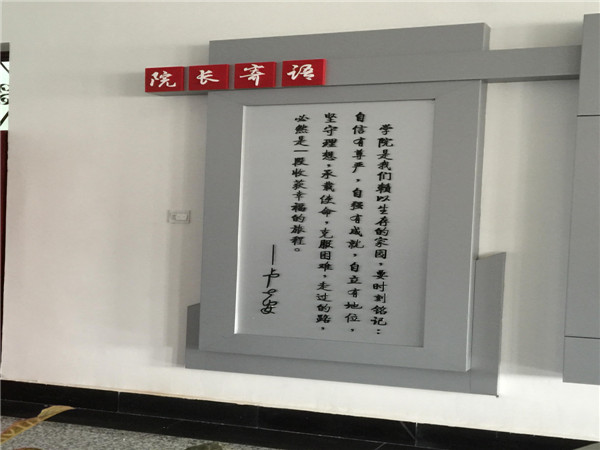 院长寄语
学院是我们赖以生存的家园,要时刻铭记:
自信有尊严,自强有成就,自立有地位,
坚守理想,承载使命,克服困难,走过的路,
必然是一段收获幸福的旅程。